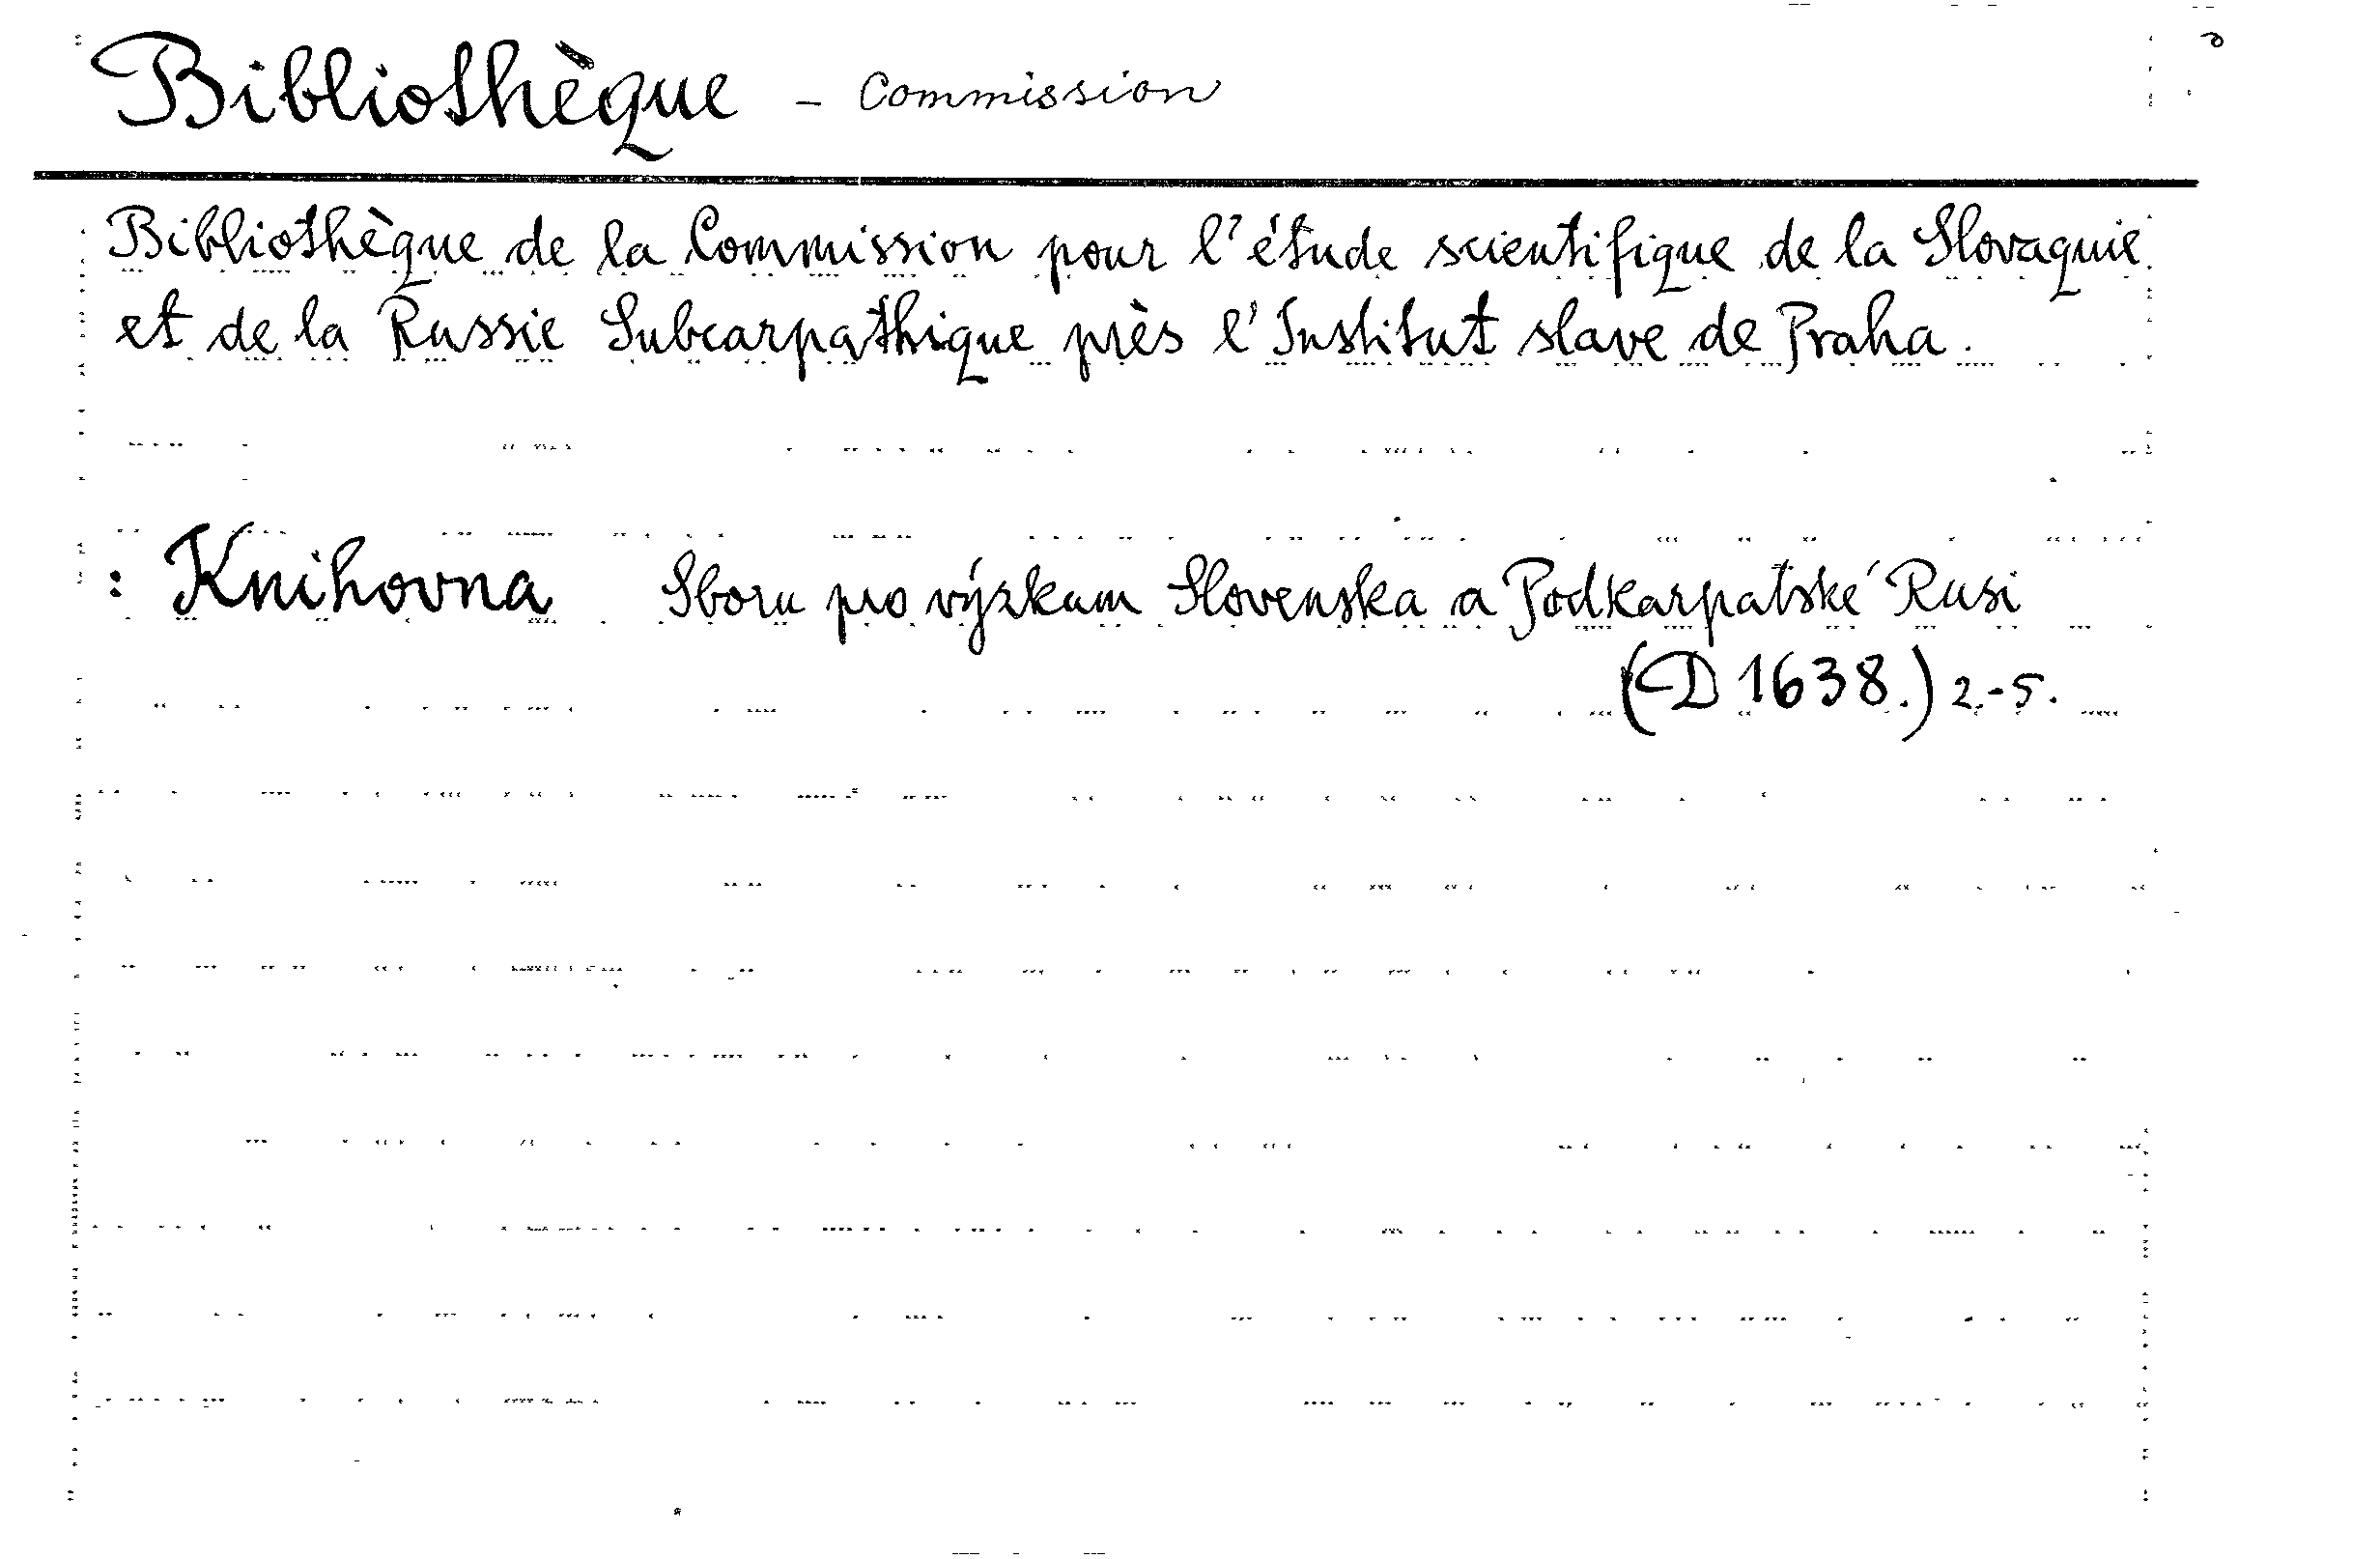 Bibliothèque - Commission
Bibliothèque de la Commission pour l'étude scientifique de la Slovaquie
et de la Russie Subcarpathique près l'Institut slave de Praha.
: Knihovna Sboru pro výzkum Slovenska a Podkarpatské Rusi
(D 1638.) 2.-5.